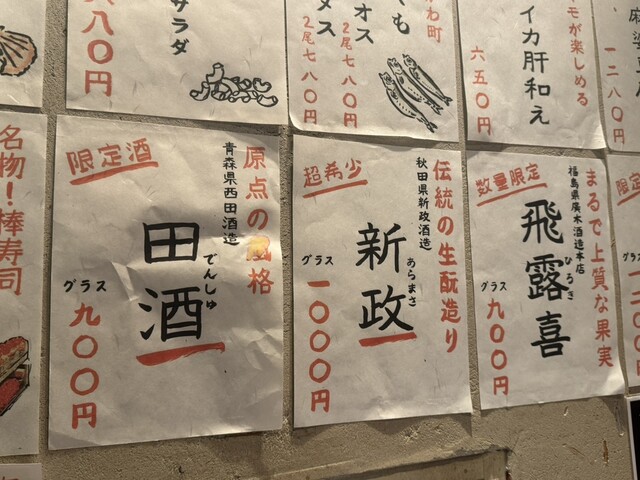 八〇円
サラダ
わ町
くも
オス
2尾七八〇円
メス
2尾七八〇円
モが楽しめる
イカ肝和え
六五〇円
一二八〇円
名物！棒寿司
限定酒
原点の風格
青森県西田酒造
田酒
でんしゅ
グラス
九〇〇円
超希少
伝統の生酛造り
秋田県新政酒造
新政
あらまさ
グラス
一〇〇〇円
数量限定
まるで上質な果実
福島県廣木酒造本店
飛露喜
ひろき
グラス
九〇〇円
限定
グラス